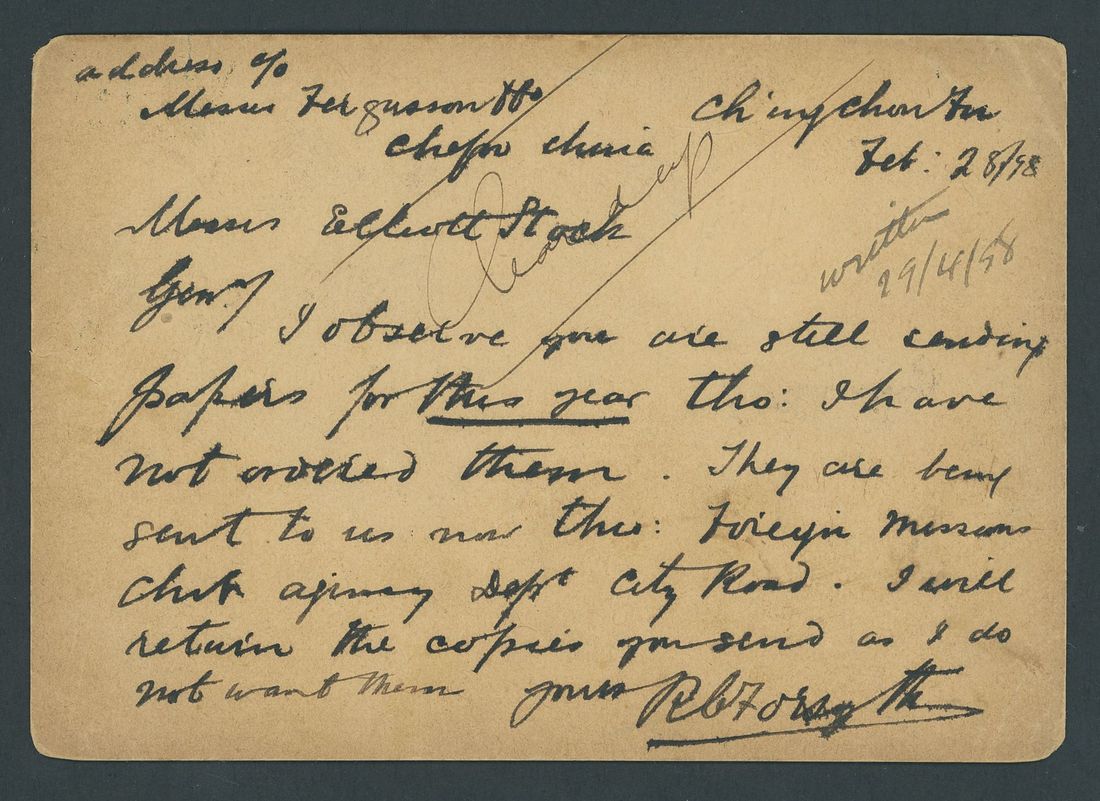 address c/o
Messrs Fergusson & Co
Chefoo China
Ch'ingchou Fu
Feb: 28/98
Messrs Elliott Stock
written
29/4/98
Gen.
I observe you are still sending
papers for this year tho: I have
not ordered them. They are being
sent to us now thro: Foreign Missions
Club agency Dept City Road. I will
return the copies you send as I do
not want them yours R C Forsyth